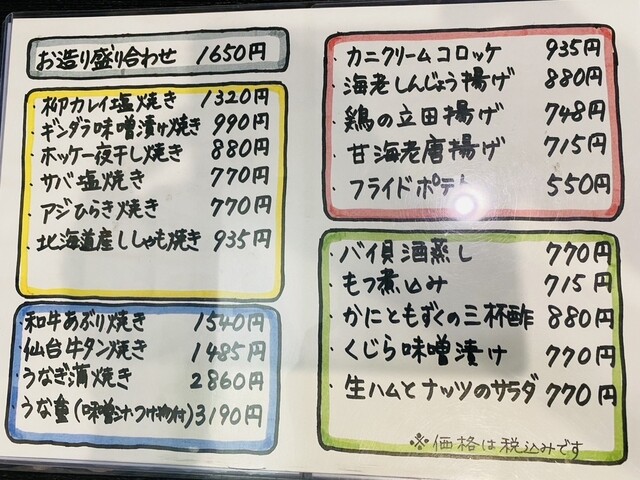 お造り盛り合わせ 1650円
・柳カレイ塩焼き 1320円
・ギンダラ味噌漬け焼き 990円
・ホッケ一夜干し焼き 880円
・サバ塩焼き 770円
・アジひらき焼き 770円
・北海道産ししゃも焼き 935円
・和牛あぶり焼き 1540円
・仙台牛タン焼き 1485円
・うなぎ蒲焼き 2860円
・うな重(味噌汁・つけ物付) 3190円
・カニクリームコロッケ 935円
・海老しんじょう揚げ 880円
・鶏の立田揚げ 748円
・甘海老唐揚げ 715円
・フライドポテト 550円
・バイ貝酒蒸し 770円
・もつ煮込み 715円
・かにともずくの三杯酢 880円
・くじら味噌漬け 770円
・生ハムとナッツのサラダ 770円
※価格は税込みです